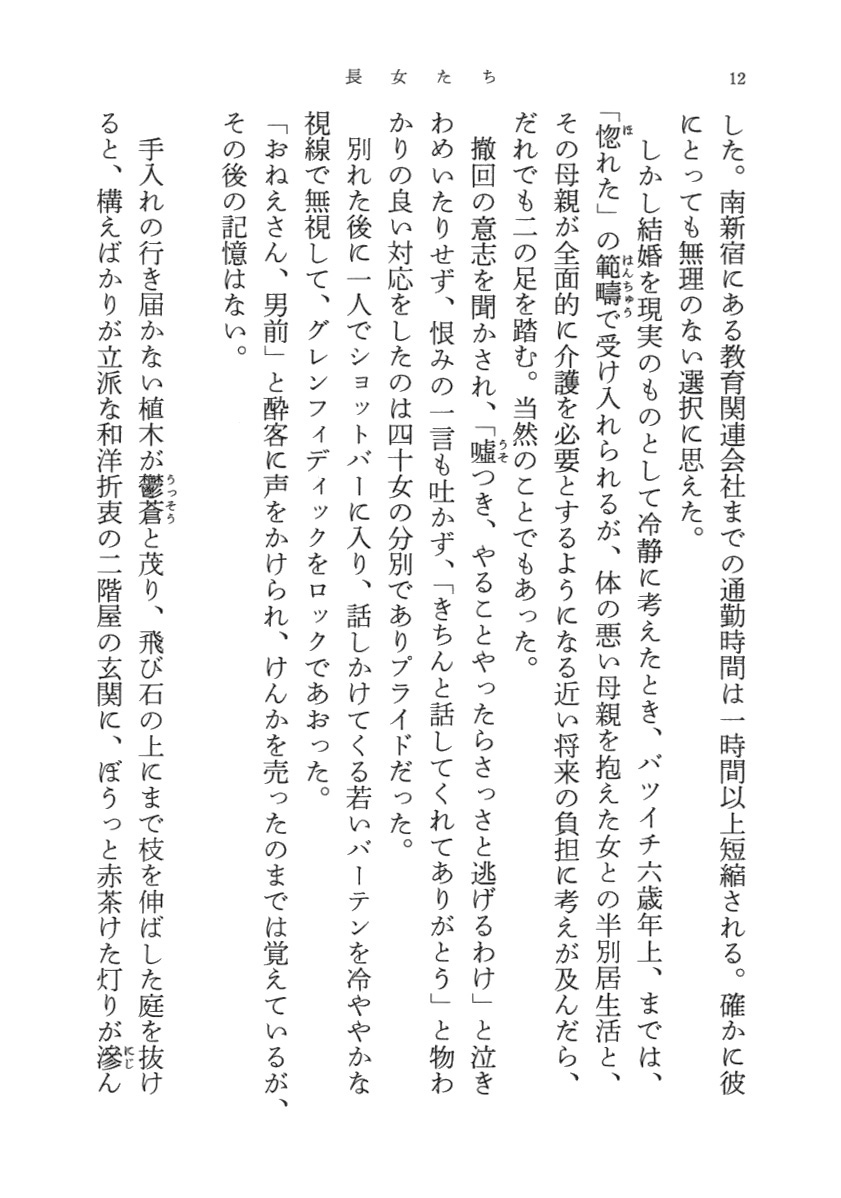 12
長女たち
した。南新宿にある教育関連会社までの通勤時間は一時間以上短縮される。確かに彼
にとっても無理のない選択に思えた。
しかし結婚を現実のものとして冷静に考えたとき、バツイチ六歳年上、までは、
「惚れた」の範疇で受け入れられるが、体の悪い母親を抱えた女との半別居生活と、
ほ
はんちゅう
その母親が全面的に介護を必要とするようになる近い将来の負担に考えが及んだら、
だれでも二の足を踏む。当然のことでもあった。
撤回の意志を聞かされ、「嘘つき、やることやったらさっさと逃げるわけ」と泣き
うそ
わめいたりせず、恨みの一言も吐かず、「きちんと話してくれてありがとう」と物わ
かりの良い対応をしたのは四十女の分別でありプライドだった。
別れた後に一人でショットバーに入り、話しかけてくる若いバーテンを冷ややかな
視線で無視して、グレンフィディックをロックであおった。
「おねえさん、男前」と酔客に声をかけられ、けんかを売ったのまでは覚えているが、
その後の記憶はない。
手入れの行き届かない植木が鬱蒼と茂り、飛び石の上にまで枝を伸ばした庭を抜け
うっそう
ると、構えばかりが立派な和洋折衷の二階屋の玄関に、ぼうっと赤茶けた灯りが滲ん
にじ